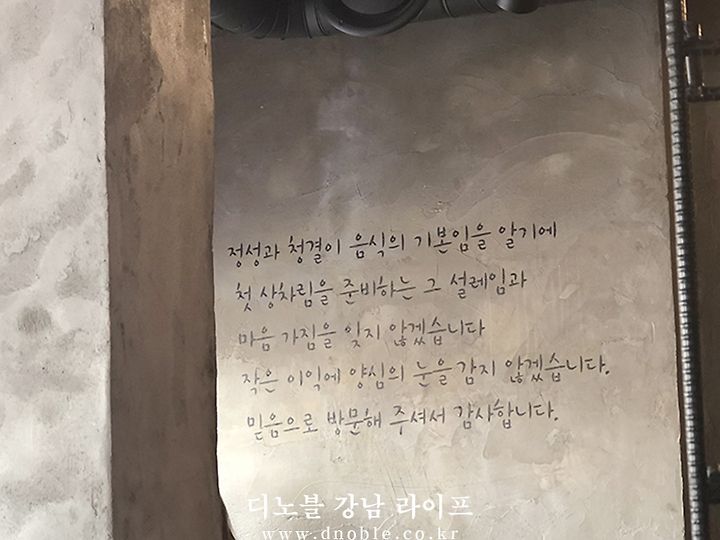 정성과 청결이 음식의 기본임을 알기에
첫 상차림을 준비하는 그 설레임과
마음 가짐을 잊지 않겠습니다
작은 이익에 양심의 눈을 감지 않겠습니다.
믿음으로 방문해 주셔서 감사합니다.
디노블 강남 라이프
www.dnoble.co.kr